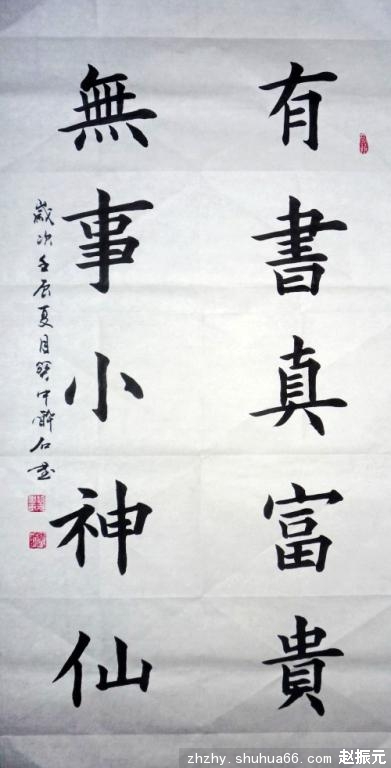 有書真富貴
無事小神仙
歲次壬辰夏月
石書
zhzhy.shuhua66.com 赵振元